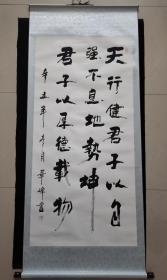 天行健君子以自
强不息地势坤
君子以厚德载物
辛丑年